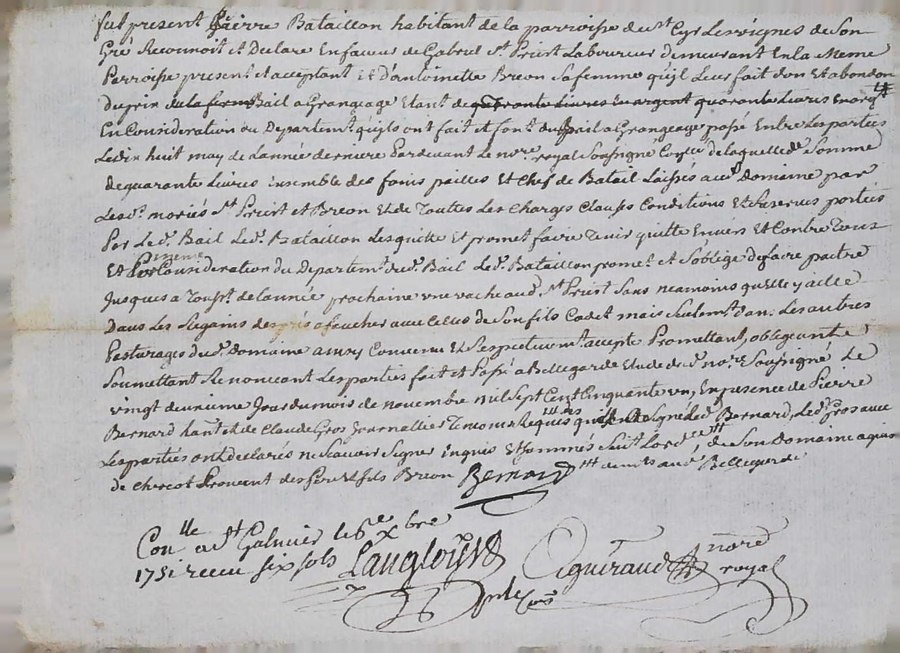 fut present Pierre Bataillon habitant de la parroisse de St Cyr Lesvignes de Son
Gré Reconnoit et Declare En faveur de Gabriel St Priest Laboureur demeurant En la Meme
Parroisse present et acceptant Et d'antoinette Breon Sa femme qu'il Leur fait don Et abondon
du prix de la ferme Bail a Grangeage Etant de quaronte Livres En argent quaronte Livres
En Consideration du Departemt quils ont fait et font du Bail a Grangeage passé Entre Les parties
Le dix huit may de L'année derniere Pardevant Le nore royal Soussigné de laquelle de Somme
de quarante Livres ensemble des foins pailles Et Chef de Batail Laissés Domaine par
Lesd. mariés St Priest et Breon Et de Touttes Les Charges Clauses Conditions Et Reserves portées
Par Led. Bail Led. Bataillon Les quitte Et promet faire Tenir quitte Envers Et Contre Tous
Et Par meme Consideration du Departemt dud. Bail Led. Bataillon promet et S'oblige de faire paitre
Jusques a Touspt de L'année prochaine une vache aud. St Priest Sans neamoins qu'elle y aille
Dans Les prés a faucher avec Celles de Son fils Cadet mais Seulemt dans Les autres
Pasturages dud. Domaine ainsy Convenu Et Respectivemt accepté Promettant, obligeant,
Soumettant Renonceant Les parties fait et Passé a Bellegarde Etude de nore Soussigné Le
vingt deuxieme Jour du mois de novembre mil Sept Cent Cinquante un, En presence de Pierre
Bernard et de Claude Gros Journallier Temoins Requis qui Signé Led. Bernard, Led. Gros avec
Les parties ont declarés ne Scavoir Signer Enquis Et Sommés Suivt Lordce de Son Domaine
de Chercot Provenant des pere et fils Breon Bernard aud. Bellegarde
Conlle a St Galmier le 6e xbre
1751 receu six sols Langloys Aguiraud nore
royal